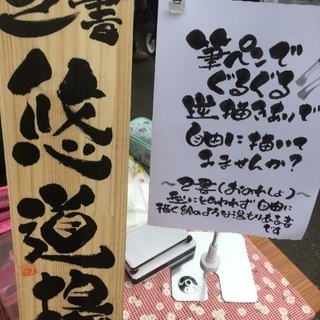 己書
悠
道
場
筆ペンで
ぐるぐる
逆描きありで
自由に描いて
みませんか?
～己書(おのれしょ)～
型にとらわれず自由に
描く絵のような温もりある書
です